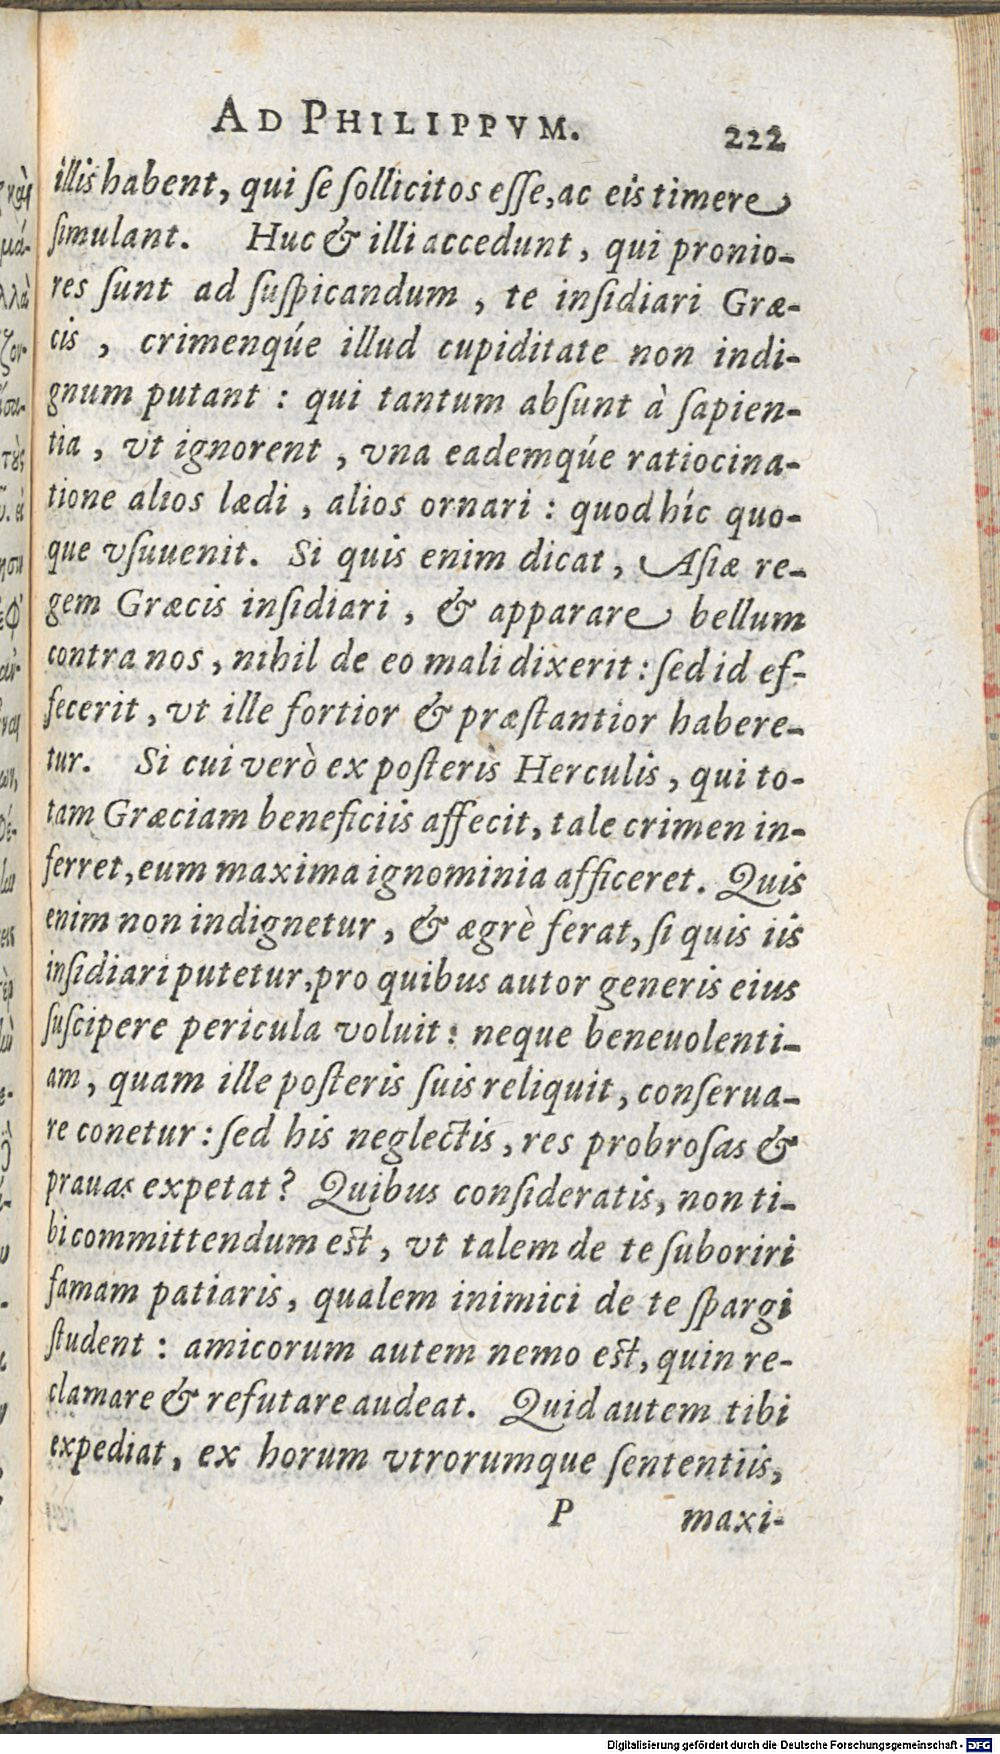 AD PHILIPPVM. 222
illis habent, qui se sollicitos esse, ac eis timere
simulant. Huc & illi accedunt, qui pronio-
res sunt ad suspicandum, te insidiari Græ-
cis, crimenqúe illud cupiditate non indi-
gnum putant: qui tantum absunt à sapien-
tia, vt ignorent, vna eademqúe ratiocina-
tione alios lædi, alios ornari: quod híc quo-
que vsuuenit. Si quis enim dicat, Asiæ re-
gem Græcis insidiari, & apparare bellum
contra nos, nihil de eo mali dixerit: sed id ef-
fecerit, vt ille fortior & præstantior habere-
tur. Si cui verò ex posteris Herculis, qui to-
tam Græciam beneficiis affecit, tale crimen in-
ferret, eum maxima ignominia afficeret. Quis
enim non indignetur, & ægrè ferat, si quis iis
insidiari putetur, pro quibus autor generis eius
suscipere pericula voluit: neque beneuolenti-
am, quam ille posteris suis reliquit, conserua-
re conetur: sed his neglectis, res probrosas &
prauas expetat? Quibus consideratis, non ti-
bi committendum est, vt talem de te suboriri
famam patiaris, qualem inimici de te spargi
student: amicorum autem nemo est, quin re-
clamare & refutare audeat. Quid autem tibi
expediat, ex horum vtrorumque sententiis,
P maxi-
Digitalisierung gefördert durch die Deutsche Forschungsgemeinschaft - DFG